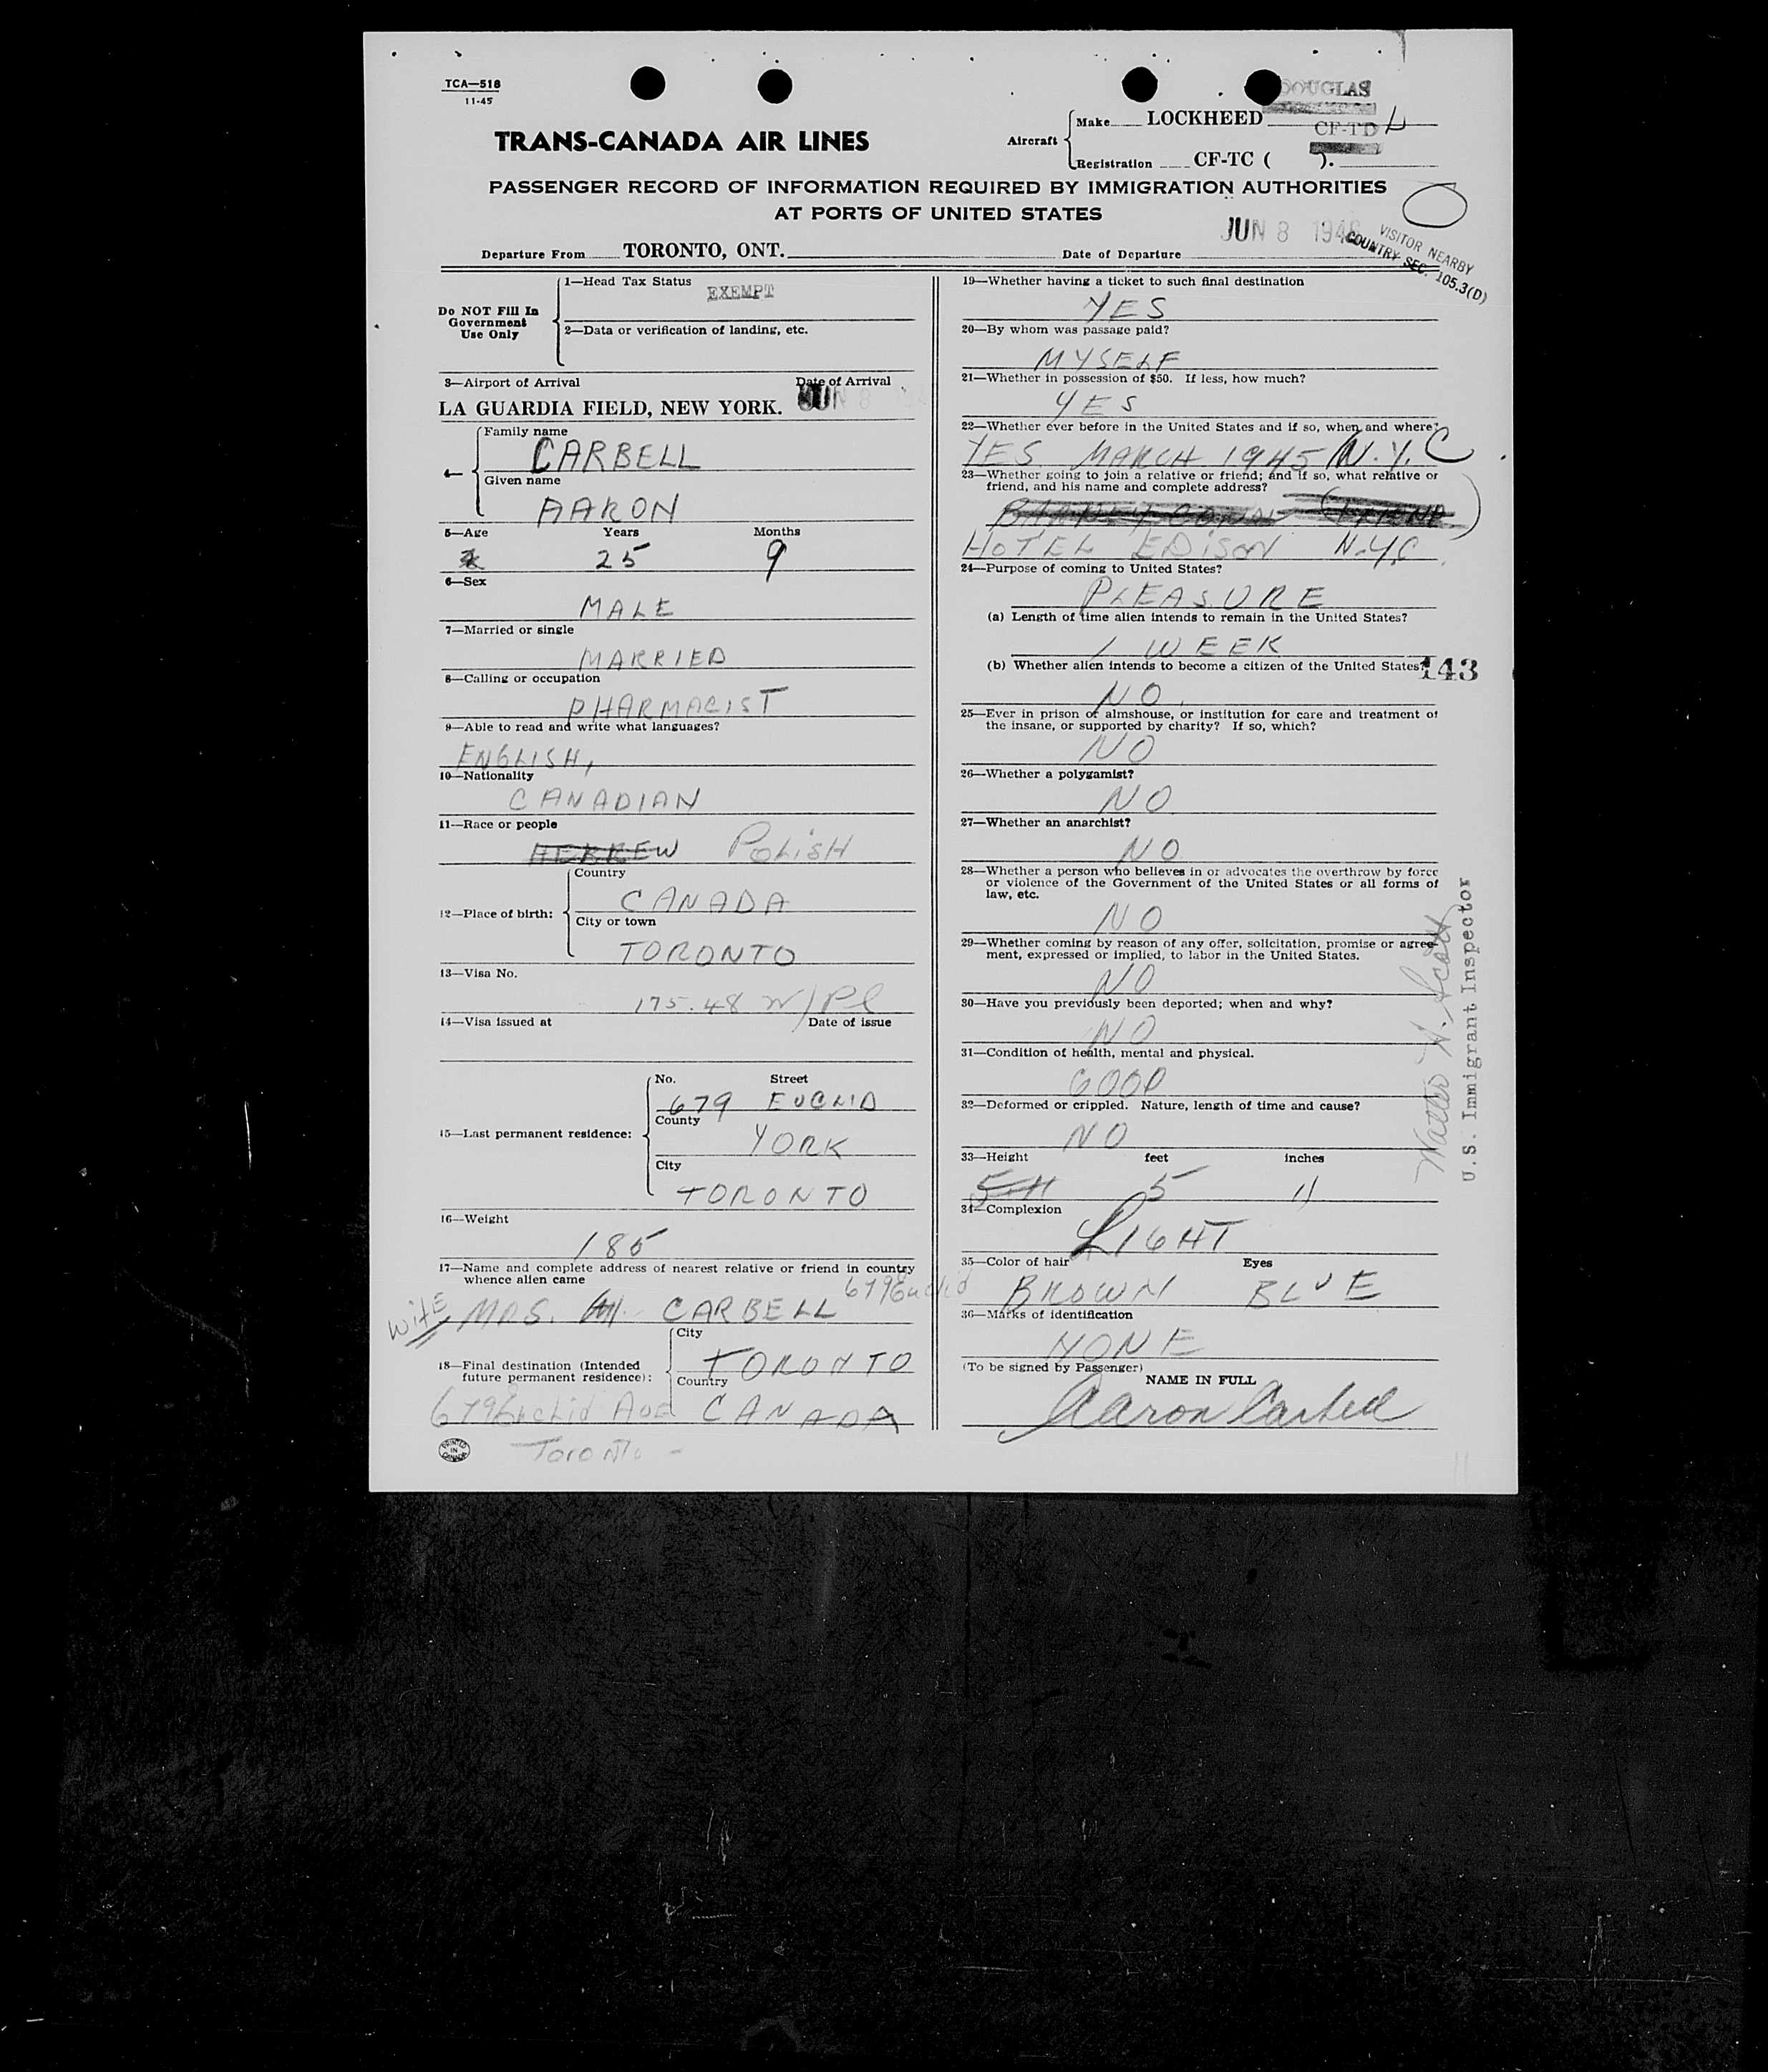 TCA—518
11-45
DOUGLAS
TRANS-CANADA AIR LINES
Aircraft
Make LOCKHEED
CF-TD L
Registration CF-TC ( ).
PASSENGER RECORD OF INFORMATION REQUIRED BY IMMIGRATION AUTHORITIES
AT PORTS OF UNITED STATES
Departure From TORONTO, ONT.
Date of Departure JUN 8 1946
VISITOR NEARBY
COUNTRY SEC. 105.3(D)
Do NOT Fill In
Government
Use Only
1—Head Tax Status EXEMPT
2—Data or verification of landing, etc.
3—Airport of Arrival Date of Arrival
LA GUARDIA FIELD, NEW YORK. JUN 8 194
4—
Family name
CARBELL
Given name
AARON
5—Age Years Months
25 9
6—Sex
MALE
7—Married or single
MARRIED
8—Calling or occupation
PHARMACIST
9—Able to read and write what languages?
ENGLISH,
10—Nationality
CANADIAN
11—Race or people
HEBREW POLISH
12—Place of birth:
Country
CANADA
City or town
TORONTO
13—Visa No.
175.48 W/Pl
14—Visa issued at Date of issue
15—Last permanent residence:
No. Street
679 EUCLID
County
YORK
City
TORONTO
16—Weight
185
17—Name and complete address of nearest relative or friend in country
whence alien came
679 Euclid
WIFE MRS. M. CARBELL
18—Final destination (Intended
future permanent residence):
City
TORONTO
Country
679 Euclid Ave CANADA
Toronto -
PRINTED
IN
CANADA
19—Whether having a ticket to such final destination
YES
20—By whom was passage paid?
MYSELF
21—Whether in possession of $50. If less, how much?
YES
22—Whether ever before in the United States and if so, when and where?
YES MARCH 1945 N.Y.C
23—Whether going to join a relative or friend; and if so, what relative or
friend, and his name and complete address?
(FRIEND)
HOTEL EDISON N.Y.C.
24—Purpose of coming to United States?
PLEASURE
(a) Length of time alien intends to remain in the United States?
1 WEEK
(b) Whether alien intends to become a citizen of the United States?
143
NO.
25—Ever in prison or almshouse, or institution for care and treatment of
the insane, or supported by charity? If so, which?
NO
26—Whether a polygamist?
NO
27—Whether an anarchist?
NO
28—Whether a person who believes in or advocates the overthrow by force
or violence of the Government of the United States or all forms of
law, etc.
NO
29—Whether coming by reason of any offer, solicitation, promise or agree-
ment, expressed or implied, to labor in the United States.
NO
30—Have you previously been deported; when and why?
NO
31—Condition of health, mental and physical.
GOOD
32—Deformed or crippled. Nature, length of time and cause?
NO
33—Height feet inches
5-11 5 11
34—Complexion
LIGHT
35—Color of hair Eyes
BROWN BLUE
36—Marks of identification
NONE
(To be signed by Passenger)
NAME IN FULL
Aaron Carbell
Walter H. Scott
U.S. Immigrant Inspector